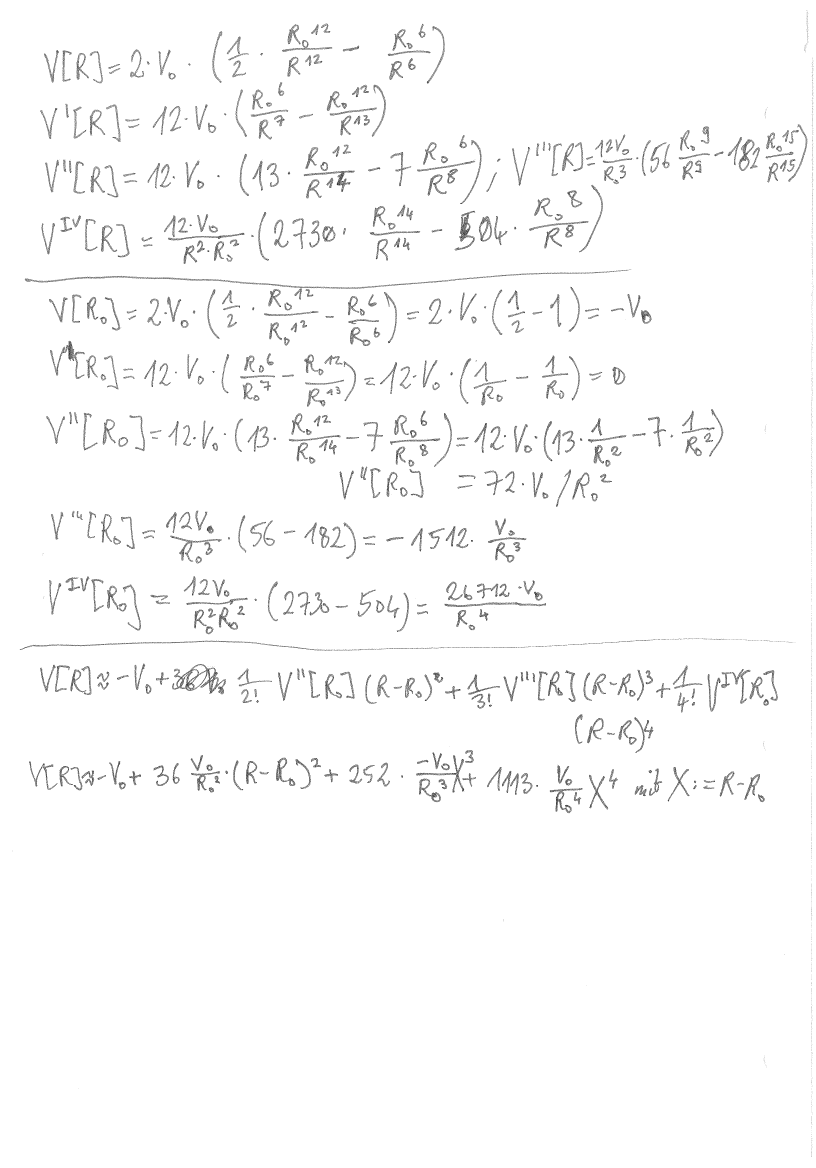 V[R] = 2·V₀ · (1/2 · R₀¹²/R¹² − R₀⁶/R⁶)
V'[R] = 12·V₀ · (R₀⁶/R⁷ − R₀¹²/R¹³)
V''[R] = 12·V₀ · (13 · R₀¹²/R¹⁴ − 7 R₀⁶/R⁸) ; V'''[R] = 12V₀/R₀³ · (56 R₀⁹/R⁹ − 182 R₀¹⁵/R¹⁵)
V^IV[R] = 12·V₀/(R²·R₀²) · (2730 · R₀¹⁴/R¹⁴ − 504 · R₀⁸/R⁸)
V[R₀] = 2·V₀ · (1/2 · R₀¹²/R₀¹² − R₀⁶/R₀⁶) = 2·V₀·(1/2 − 1) = −V₀
V'[R₀] = 12·V₀ · (R₀⁶/R₀⁷ − R₀¹²/R₀¹³) = 12·V₀ · (1/R₀ − 1/R₀) = 0
V''[R₀] = 12·V₀ · (13 · R₀¹²/R₀¹⁴ − 7 R₀⁶/R₀⁸) = 12·V₀·(13·1/R₀² − 7·1/R₀²)
V''[R₀] = 72·V₀/R₀²
V'''[R₀] = 12V₀/R₀³ · (56 − 182) = −1512 · V₀/R₀³
V^IV[R₀] = 12V₀/(R₀²R₀²) · (2730 − 504) = 26712·V₀/R₀⁴
V[R] ≈ −V₀ + 1/2! V''[R₀] (R−R₀)² + 1/3! V'''[R₀] (R−R₀)³ + 1/4! V^IV[R₀]
(R−R₀)⁴
V[R] ≈ −V₀ + 36 V₀/R₀² · (R−R₀)² + 252 · −V₀/R₀³ X³ + 1113 · V₀/R₀⁴ X⁴ mit X := R−R₀